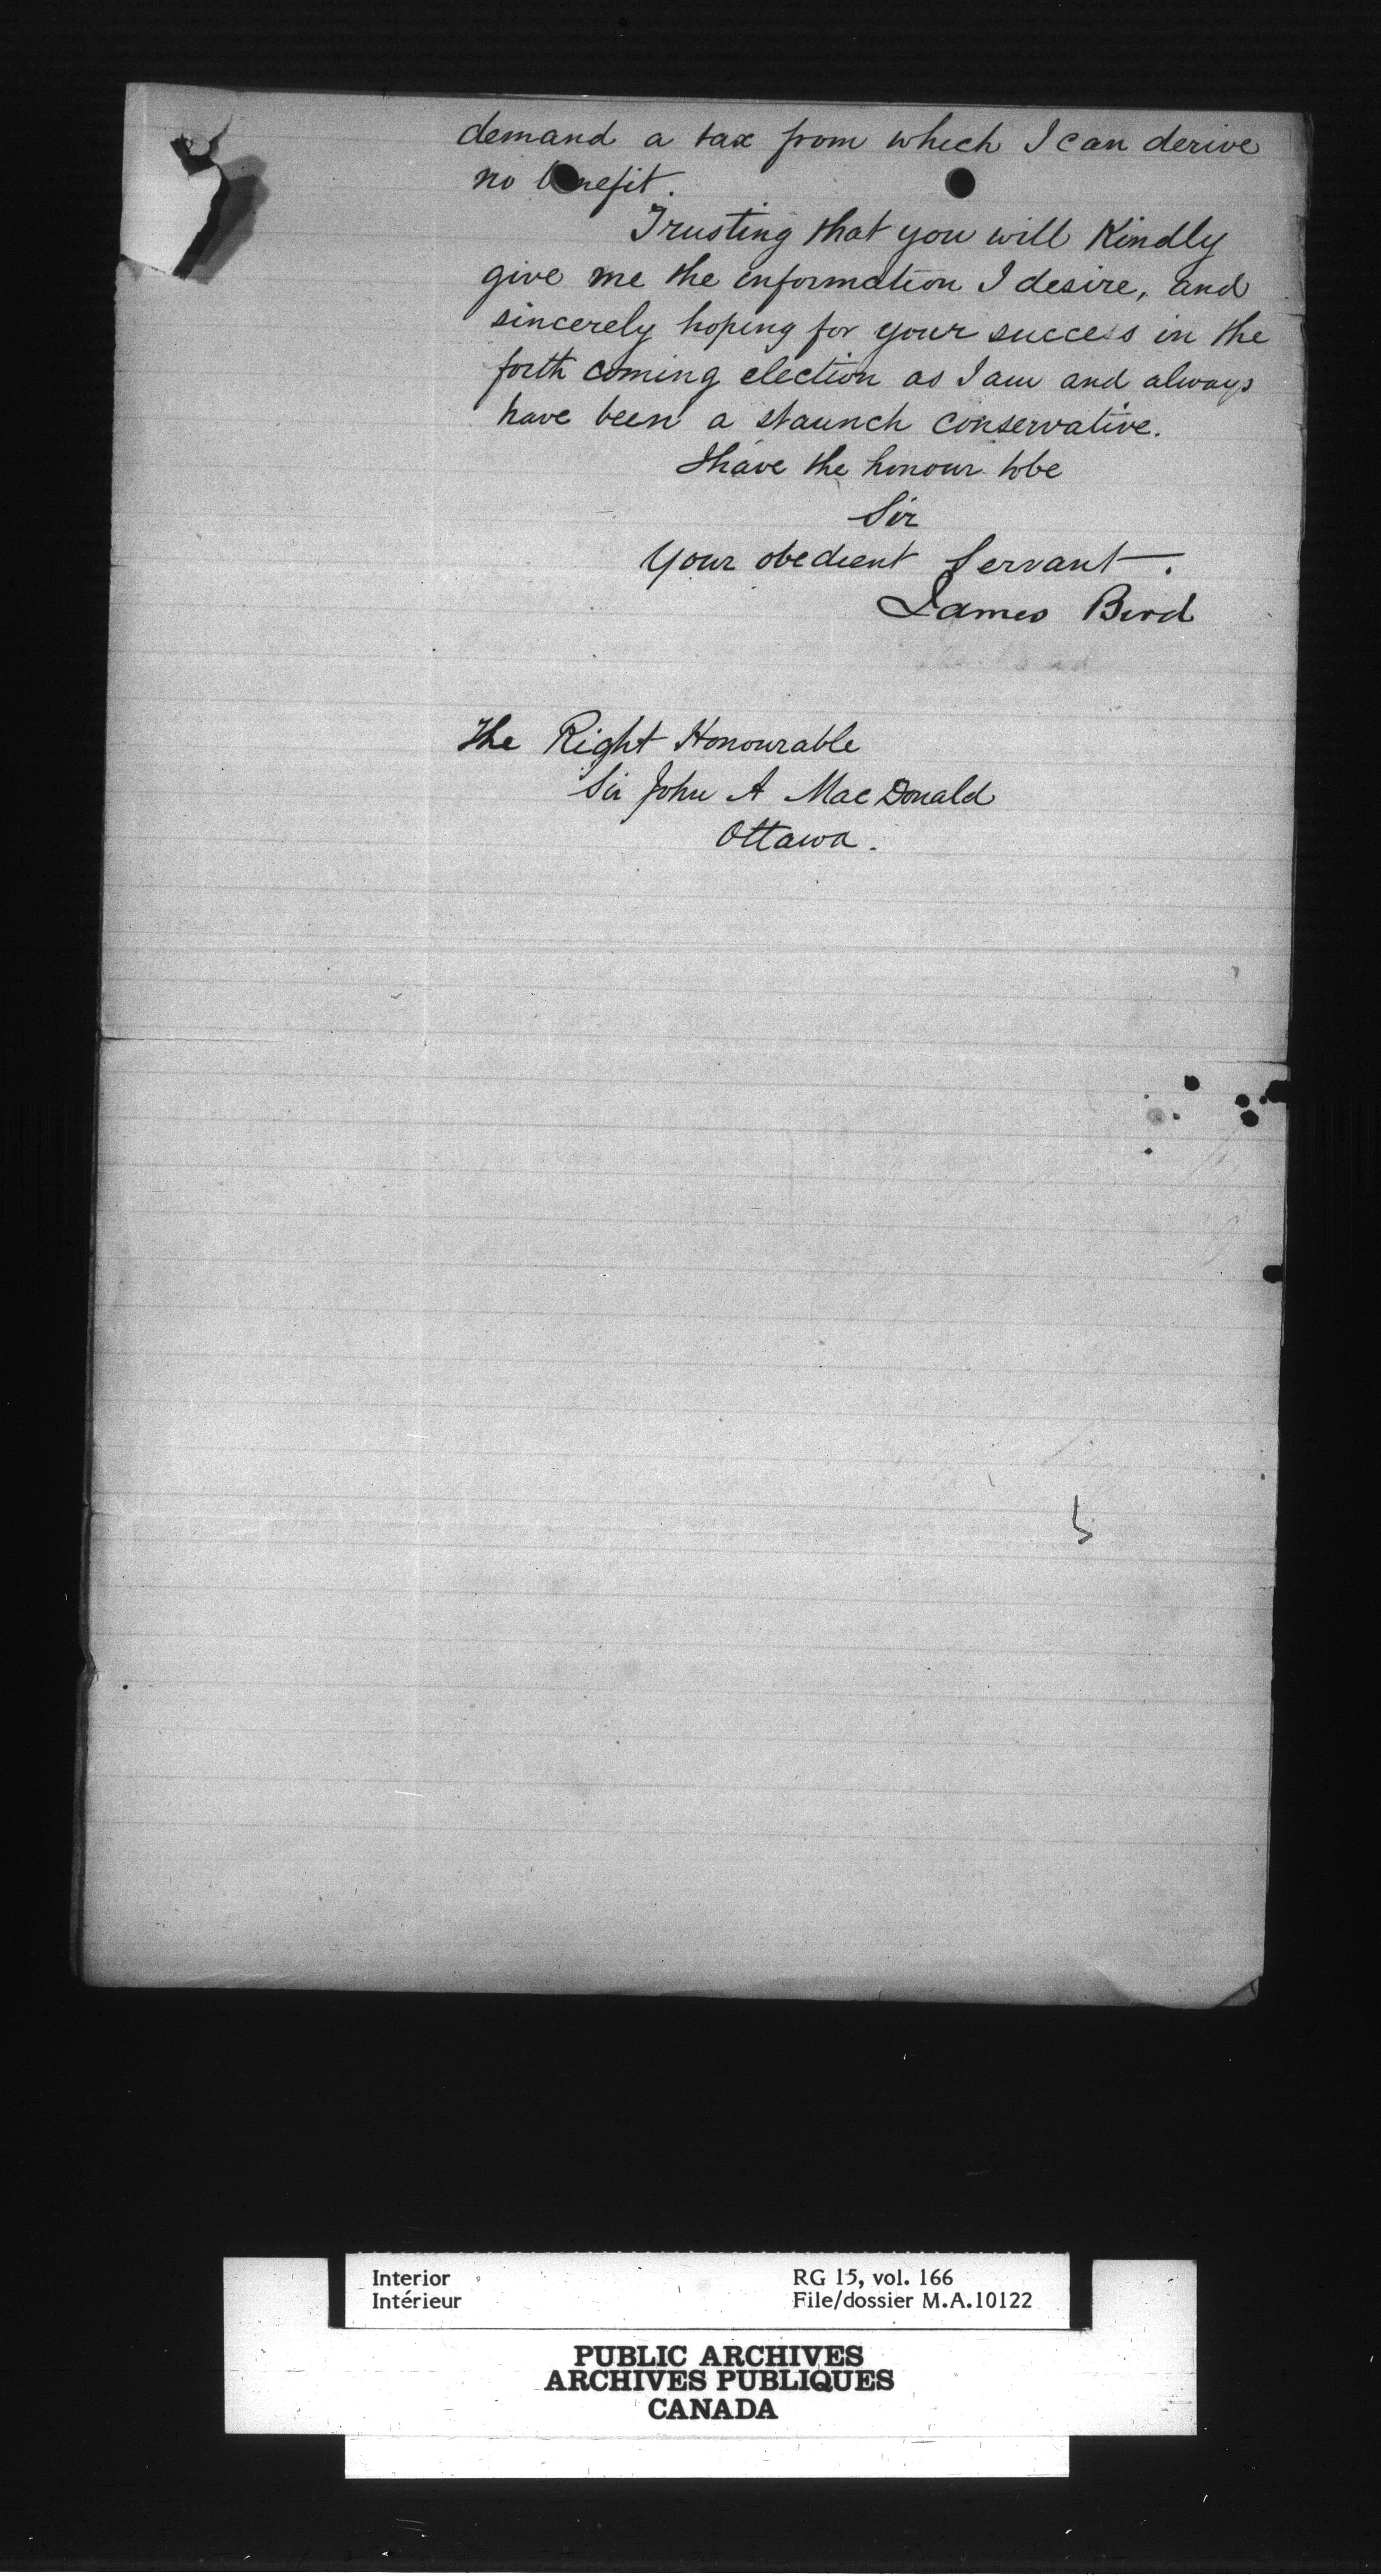 demand a tax from which I can derive
no benefit.
Trusting that you will Kindly
give me the information I desire, and
sincerely hoping for your success in the
forth coming election as I am and always
have been a staunch conservative.
I have the honour to be
Sir
Your obedient Servant.
James Bird
The Right Honourable
Sir John A MacDonald
Ottawa.
Interior
Intérieur
RG 15, vol. 166
File/dossier M.A.10122
PUBLIC ARCHIVES
ARCHIVES PUBLIQUES
CANADA